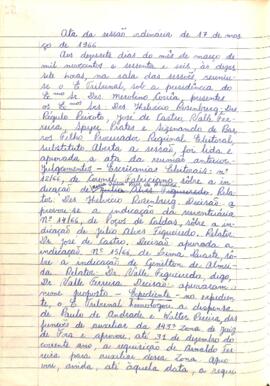 Ata da sessão ordinária de 17 de mar-
ço de 1966
Aos dezessete dias do mês de março de
mil novecentos e sessenta e seis, às dezes-
sete horas, na sala das sessões, reuniu-
se o E. Tribunal, sob a presidência do
Exmo Sr. Des. Merolino Corrêa, presentes
os Exmos Srs. Des. Helvecio Rosenburg, Drs.
Régulo Peixoto, José de Castro, Valle Fer-
reira, Speyer Prates e Fernando de Bar-
ros Filho, Procurador Regional Eleitoral,
substituto. Aberta a sessão, foi lida e
aprovada a ata da reunião anterior.
Julgamentos - Escrivanias Eleitorais: nº
12/66, de Coronel Fabriciano, sôbre a in-
dicação de
Rela-
tor: Des. Helvecio Rosenburg. Decisão: a-
provou-se a indicação da serventuária
Nº 14/66, de Poços de Caldas, sôbre a in-
dicação de Julio Alves Figueiredo, Relator:
Dr. José de Castro. Decisão: aprovada a
indicação. Nº 15/66, de Lima Duarte, sô-
bre a indicação de Genilton de Almei-
da. Relator: Dr. Valle Figueiredo, digo,
Dr. Valle Ferreira. Decisão: aprovaram o
nome proposto. - Expediente - no expedien-
te, o E. Tribunal homologou a dispensa
de Paulo de Andrade e Walter Pereira, das
funções de auxiliar da 143ª zona, de Juiz
de Fora e aprovou, até 31 de dezembro do
corrente ano, a requisição de Arnaldo Fer-
reira para auxiliar dessa Zona. Apro-
vou, ainda, até aquela data, a requi-